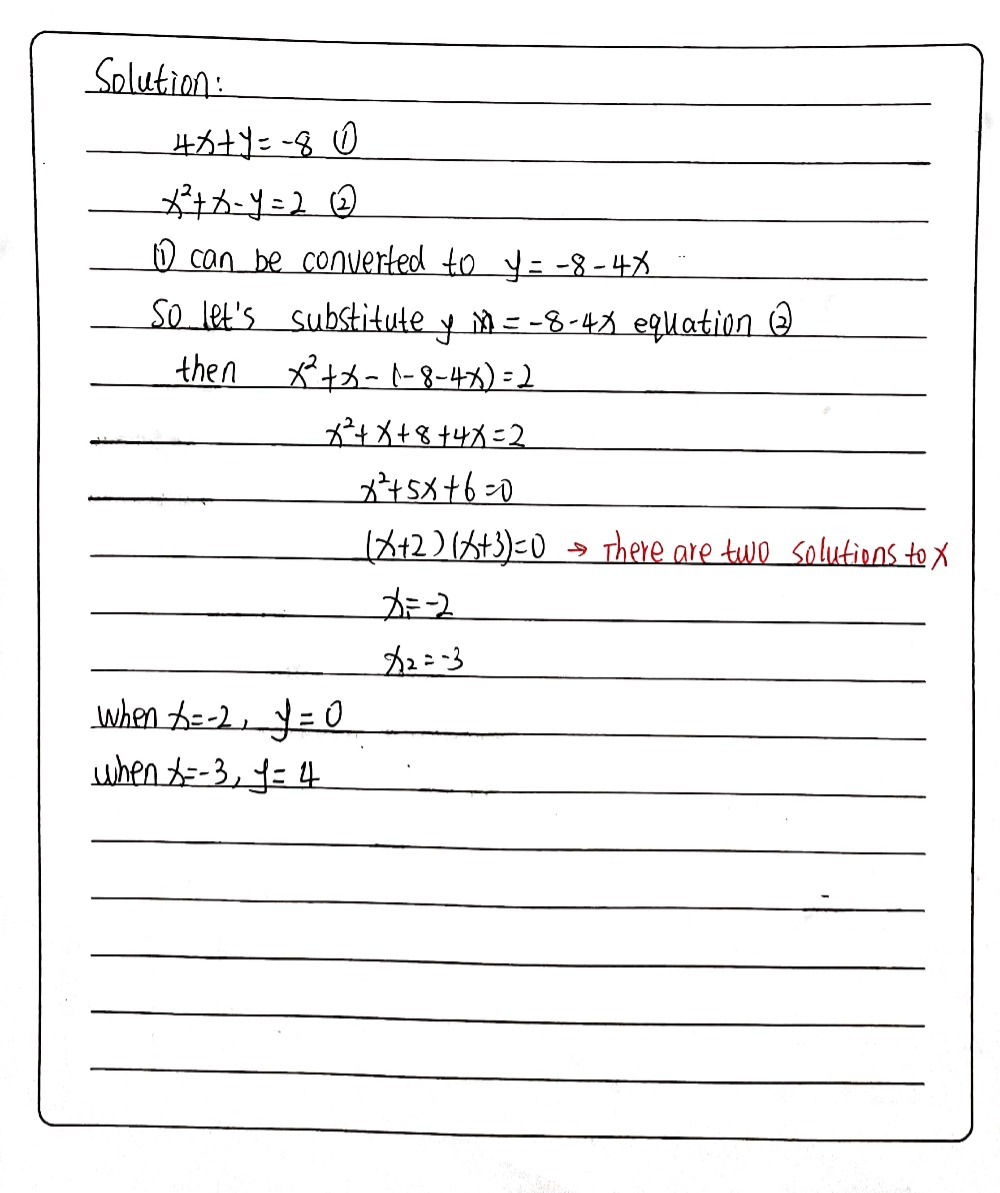 Solution:
4x+y=-8 ①
x²+x-y=2 ②
① can be converted to y=-8-4x
So let's substitute y =-8-4x equation ②
then x²+x-(-8-4x)=2
x²+x+8+4x=2
x²+5x+6=0
(x+2)(x+3)=0 → There are two solutions to x
x₁=-2
x₂=-3
when x=-2, y=0
when x=-3, y=4